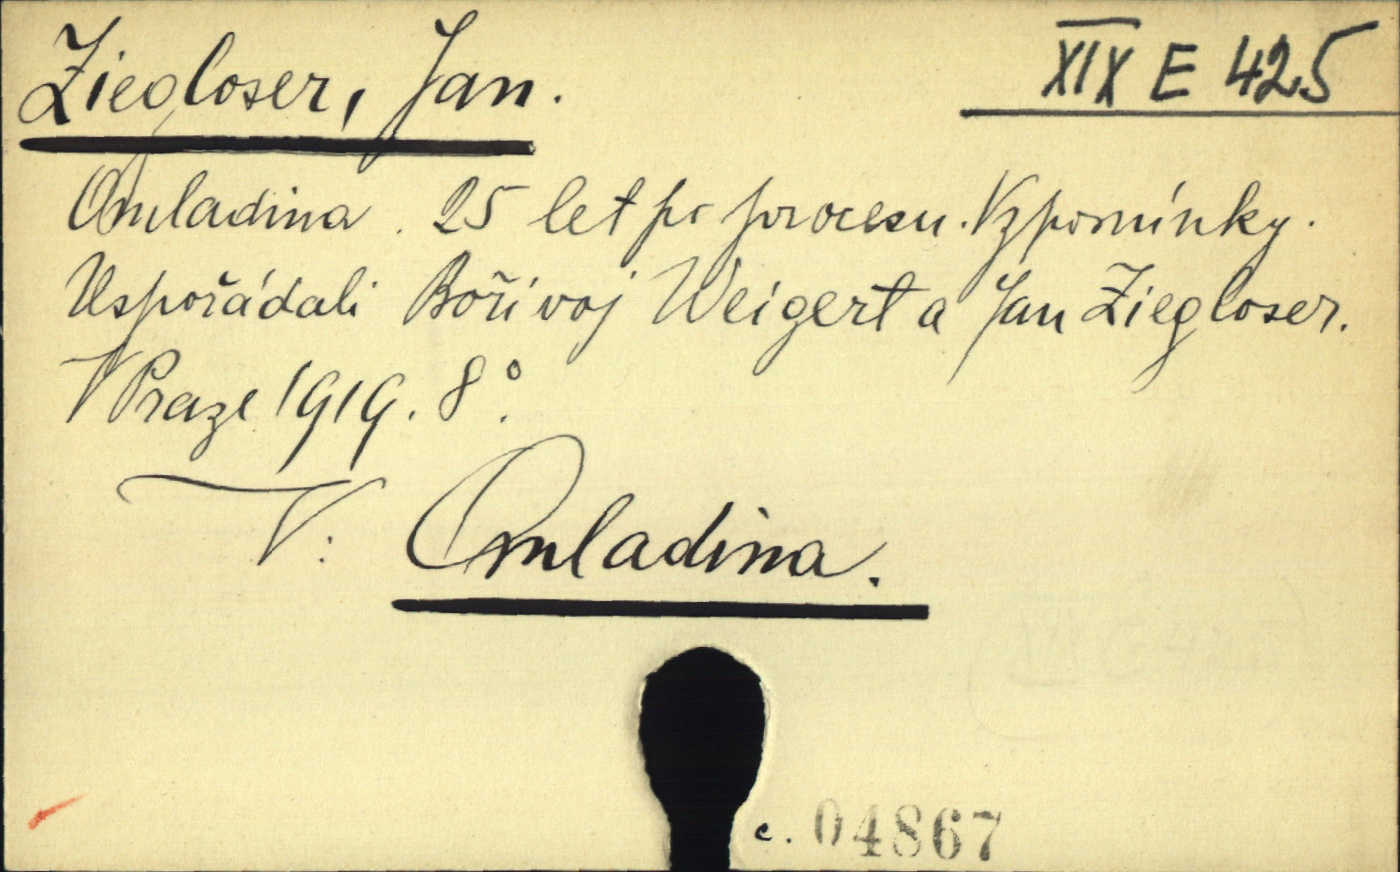 Ziegloser, Jan.
XIX E 425
Omladina. 25 let po procesu. Vzpomínky.
Uspořádali Bořivoj Weigert a Jan Ziegloser.
V Praze 1919. 8°.
V: Omladina.
c. 04867